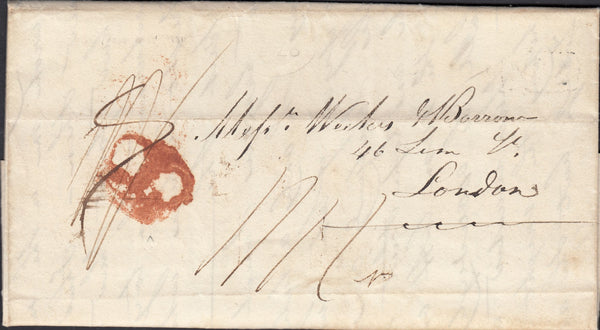 Mess.rs Weekes & Borrow
46 Lim St.
London